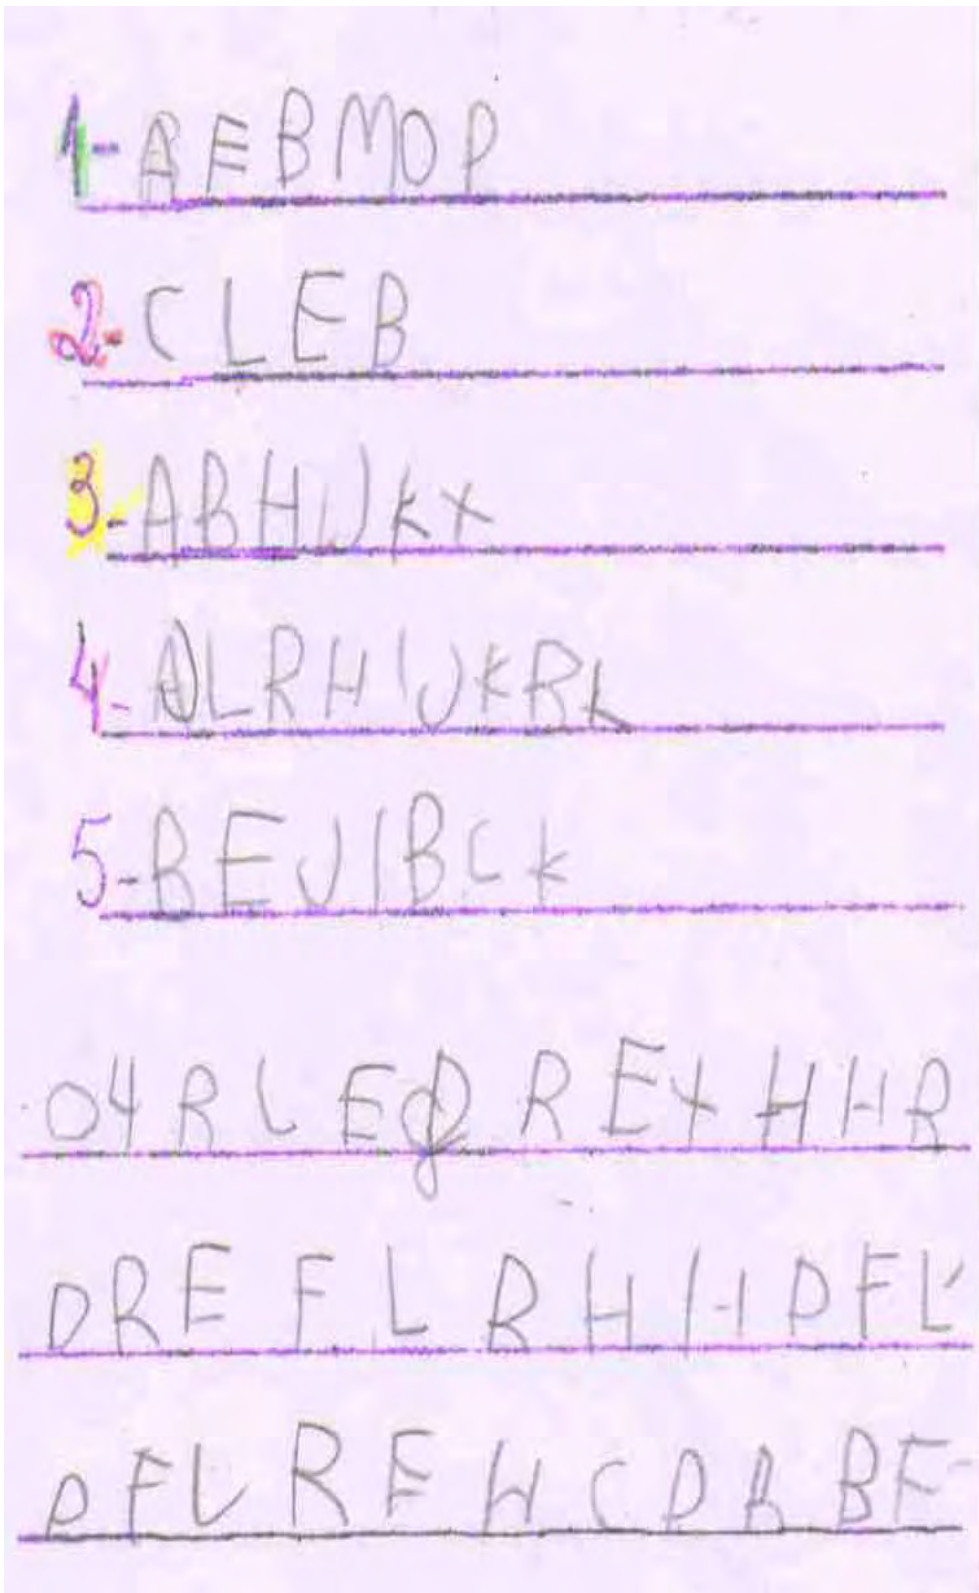 1- AEBMOP
2- CLEB
3- ABHIJKX
4- ALRHIJKRK
5- BEJIBCK
O4RLE REXHHR
DREFLRHHDFL
DFLREHCDRBF